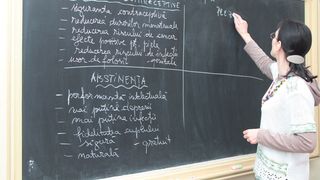 CONTRACEPTIVE
– siguranta contraceptivă
– reducerea durerilor menstruale
– reducerea riscului de cancer
– efecte pozitive pt. piele
– reducerea riscului de infecţii genitale
– usor de folosit
ABSTINENŢA
– performanţă intelectuală
– mai puţine depresii
– mai puţine infecţii
– fidelitatea cuplului
– sigură – gratuit
– naturală